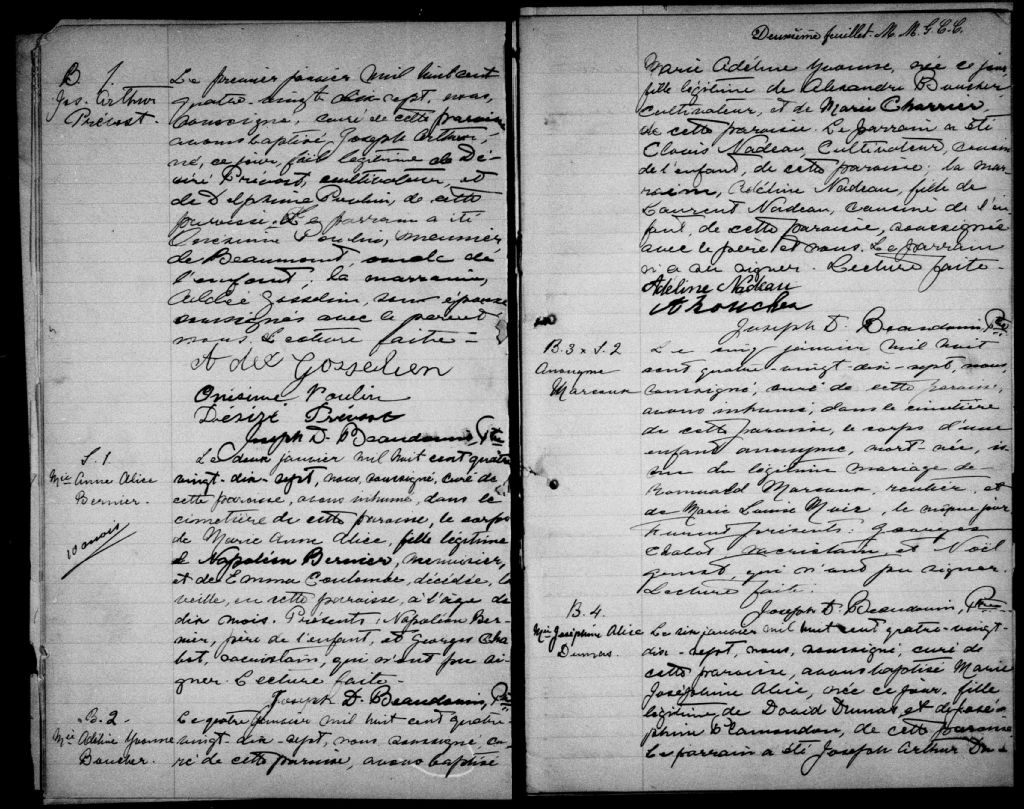 B. 1.
Jos. Arthur
Prévost.
Le premier janvier mil huit cent
quatre-vingt dix-sept, nous,
soussigné, curé de cette paroisse
avons baptisé Joseph Arthur,
né, ce jour, fils légitime de Dé-
siré Prévost, cultivateur, et
de Delphine Poulin, de cette
paroisse. Le parrain a été
Onésime Poulin, meunier
de Beaumont, oncle de
l'enfant; la marraine,
Adèle Gosselin, son épouse
soussignés avec le père et
nous. Lecture faite-
Adel Gosselien
Onisime Poulin
Désizé Prévost
Joseph D. Beaudouin, Ptre
S. 1
Mie Anne Alice
Bernier.
10 mois
Le deux janvier mil huit cent quatre
vingt-dix-sept, nous, soussigné, curé de
cette paroisse, avons inhumé, dans le
cimetière de cette paroisse, le corps
de Marie Anne Alice, fille légitime
de Napoléon Bernier, menuisier,
et de Emma Coulombe, décédée, la
veille, en cette paroisse, à l'âge de
dix mois. Présents: Napoléon Ber-
nier, père de l'enfant, et Georges Cha-
bot, sacristain, qui n'ont pu si-
gner. Lecture faite-
Joseph D. Beaudouin, Ptre
B. 2-
Mie Adéline Yvonne
Boucher.
Le quatre janvier mil huit cent quatre-
vingt-dix-sept, nous soussigné cu-
ré de cette paroisse, avons baptisé
Deuxième feuillet. M. M. G. C. C.
Marie Adéline Yvonne, née ce jour,
fille légitime de Alexandre Boucher
cultivateur, et de Marie Charrier,
de cette paroisse. Le parrain a été
Clovis Nadeau, cultivateur, cousin
de l'enfant, de cette paroisse; la mar-
raine, Adéline Nadeau, fille de
Laurent Nadeau, cousine de l'en-
fant, de cette paroisse, soussignée
avec le père et nous. Le parrain
n'a su signer. Lecture faite-
Adéline Nadeau
A Boucher
Joseph D. Beaudouin, Ptre
B. 3 x S. 2
Anonyme
Marcoux
Le cinq janvier mil huit
cent quatre-vingt-dix-sept, nous
soussigné, curé de cette paroisse,
avons inhumé, dans le cimetière
de cette paroisse, le corps d'une
enfant anonyme, mort-née, is-
sue du légitime mariage de
Romuald Marcoux, rentier, et
de Marie Louise Muir, le même jour
Furent présents: Georges
Chabot sacristain, et Noël
qui n'ont pu signer.
Lecture faite.
Joseph D. Beaudouin, Ptre
B. 4.
Mie Joséphine Alice
Dumas.
Le six janvier mil huit cent quatre-vingt-
dix-sept, nous, soussigné, curé de
cette paroisse, avons baptisé Marie
Joséphine Alice, née ce jour, fille
légitime, de David Dumas et de José-
phine Plamondon, de cette paroisse
Le parrain a été Joseph Arthur Du-